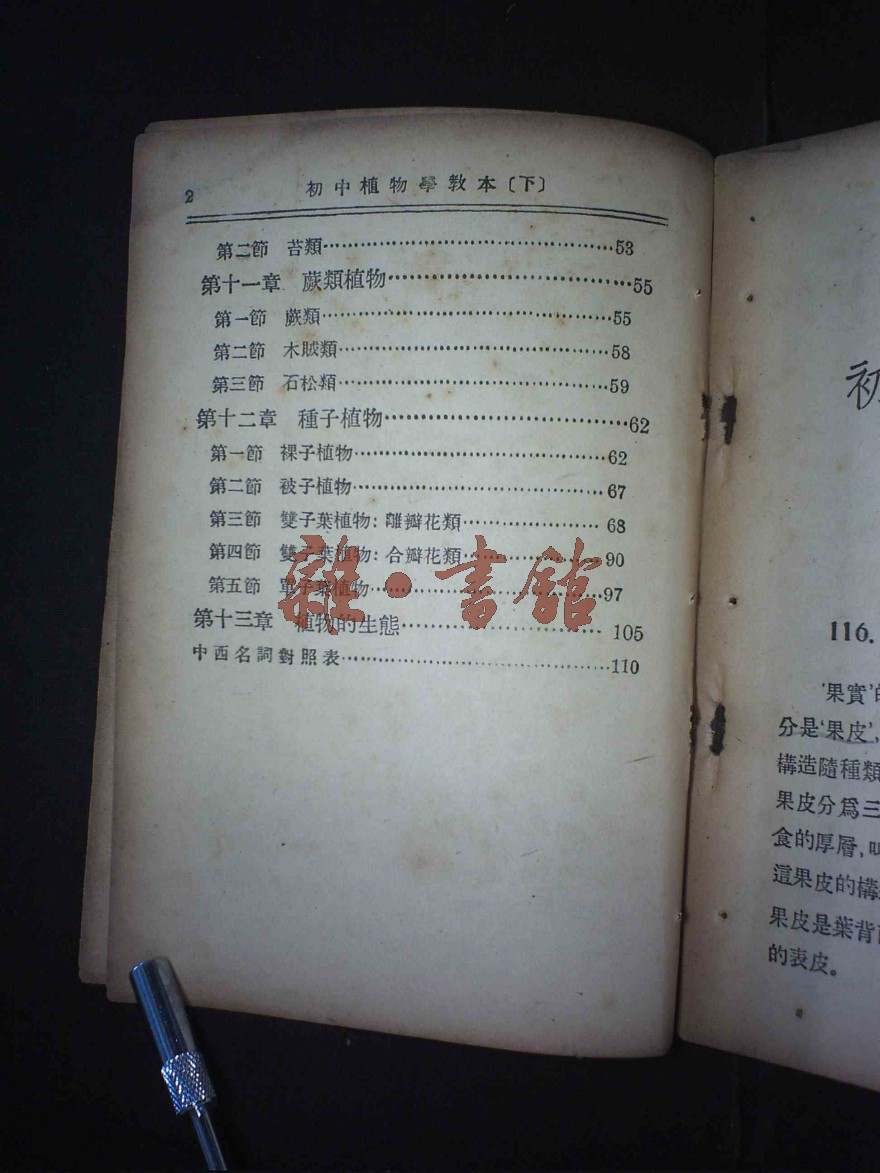 2
初中植物學教本〔下〕
第二節 苔類……………………………………53
第十一章 蕨類植物……………………………55
第一節 蕨類……………………………………55
第二節 木賊類…………………………………58
第三節 石松類…………………………………59
第十二章 種子植物……………………………62
第一節 裸子植物………………………………62
第二節 被子植物………………………………67
第三節 雙子葉植物：離瓣花類………………68
第四節 雙子葉植物：合瓣花類………………90
第五節 單子葉植物……………………………97
第十三章 植物的生態…………………………105
中西名詞對照表…………………………………110
雜·書館
初
116.
'果實'的
分是'果皮',
構造隨種類
果皮分爲三
食的厚層,叫
這果皮的構
果皮是葉背
的表皮。